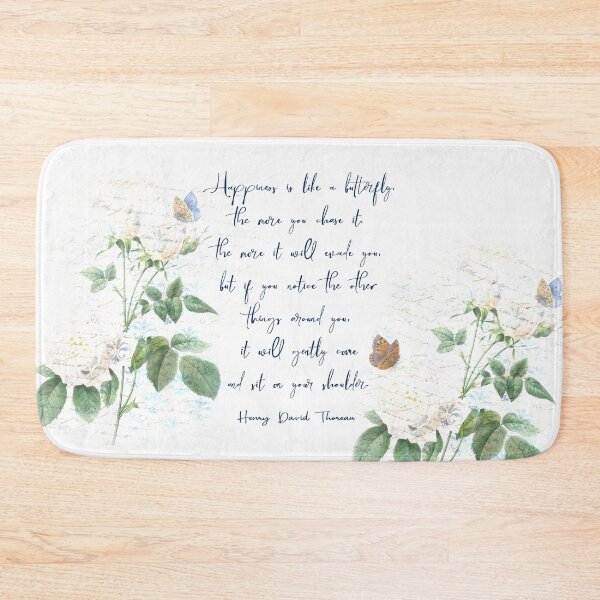 Happiness is like a butterfly,
the more you chase it,
the more it will evade you,
but if you notice the other
things around you,
it will gently come
and sit on your shoulder.
Henry David Thoreau